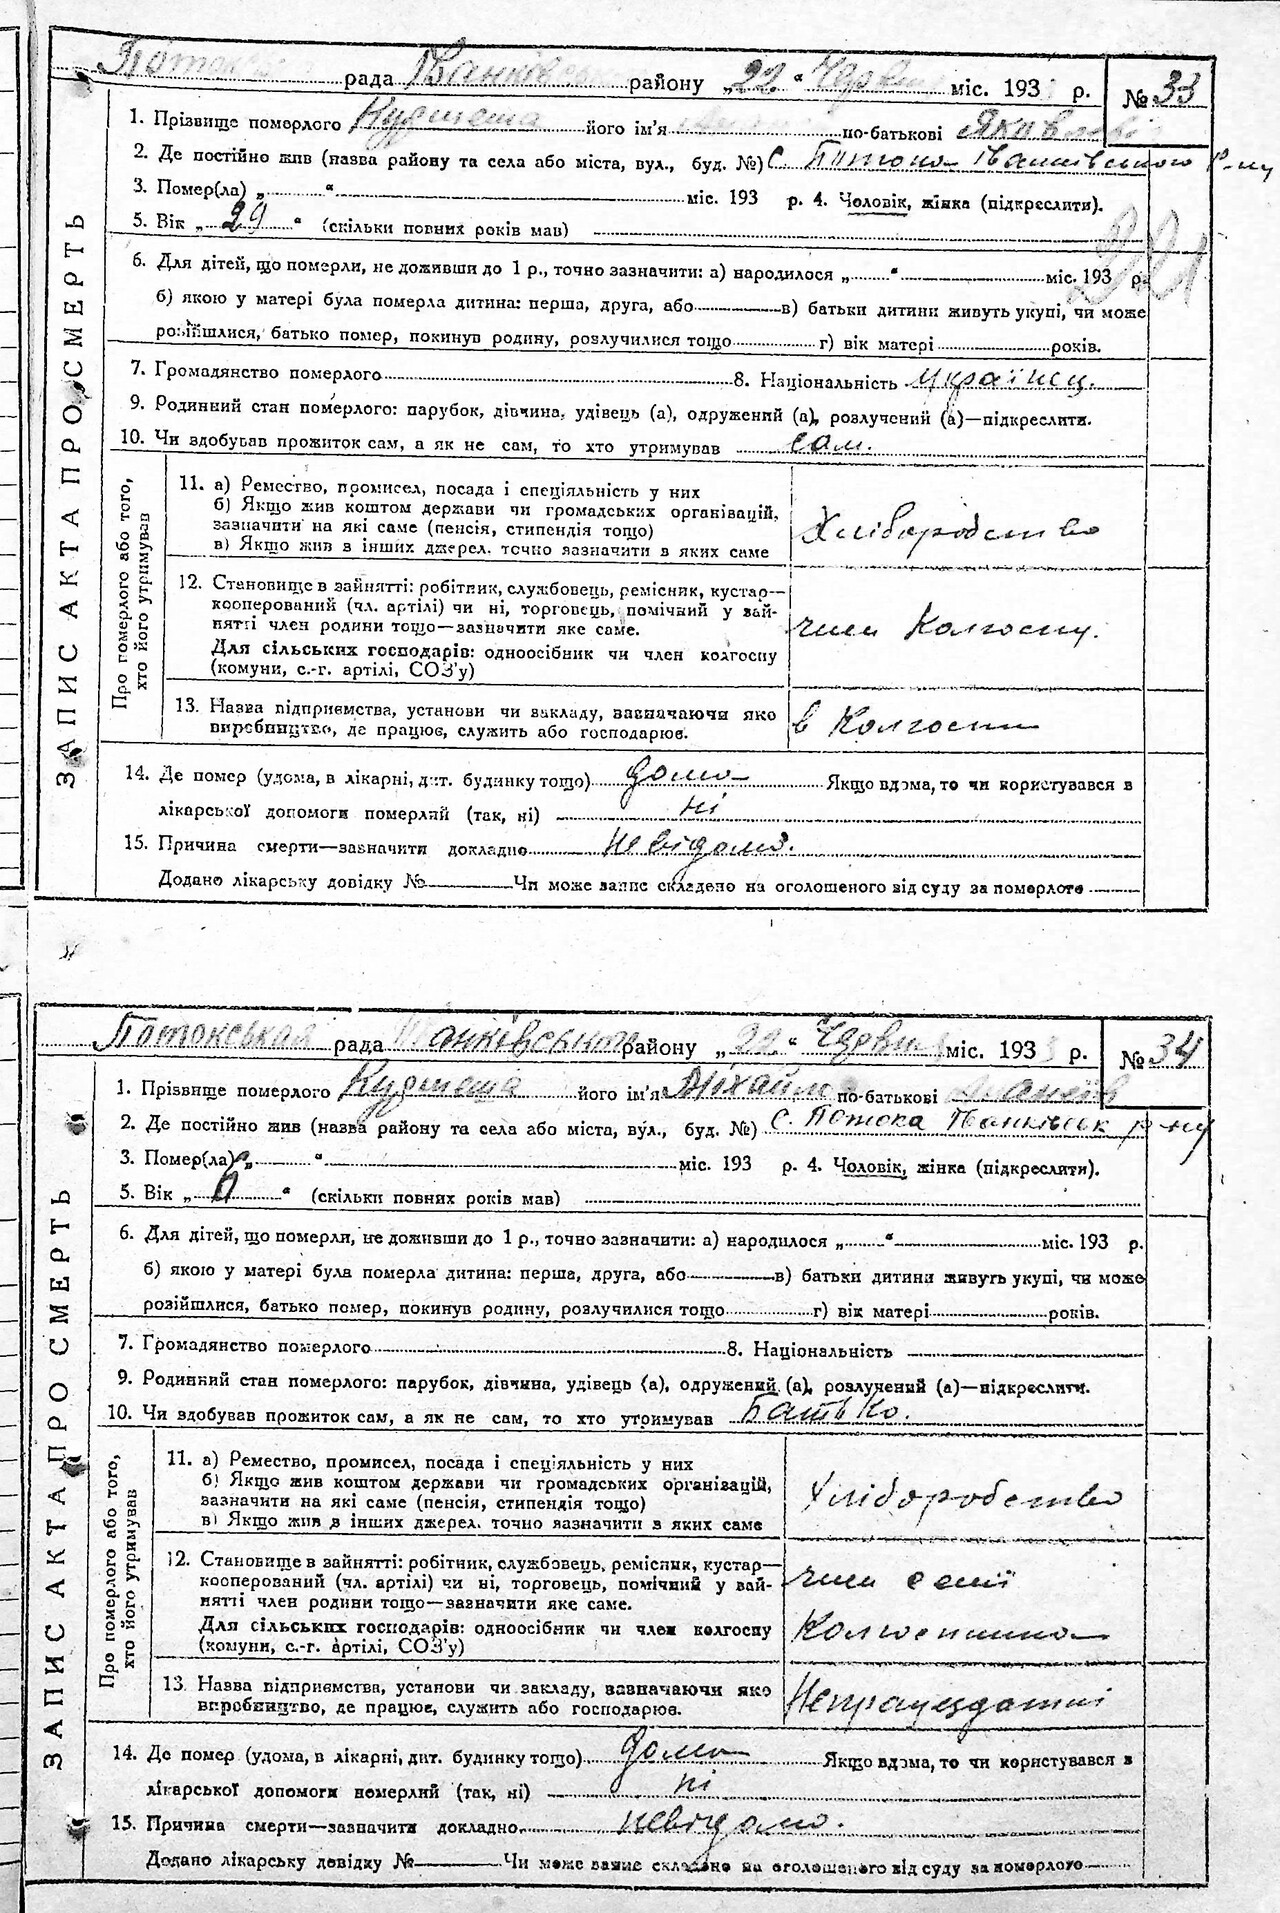 Потокс рада Іванківськ району „22“ Червня міс. 193 р. № 33
1. Прізвище померлого Кудшеша його ім'я по-батькові Яковлев
2. Де постійно жив (назва району та села або міста, вул., буд. №) с. Потока Іванківського р-ну
3. Помер(ла) „ “ міс. 193 р. 4. Чоловік, жінка (підкреслити).
5. Вік „ 29 “ (скільки повних років мав)
221
6. Для дітей, що померли, не доживши до 1 р., точно зазначити: а) народилося „ “ міс. 193 р.
б) якою у матері була померла дитина: перша, друга, або в) батьки дитини живуть укупі, чи може
розійшлися, батько помер, покинув родину, розлучилися тощо г) вік матері років.
7. Громадянство померлого 8. Національність українец.
9. Родинний стан померлого: парубок, дівчина, удівець (а), одружений (а), розлучений (а)—підкреслити.
10. Чи здобував прожиток сам, а як не сам, то хто утримував сам.
ЗАПИС АКТА ПРО СМЕРТЬ
Про померлого або того, хто його утримував
11. а) Ремество, промисел, посада і спеціяльність у них
б) Якщо жив коштом держави чи громадських організацій,
зазначити на які саме (пенсія, стипендія тощо)
в) Якщо жив з інших джерел, точно зазначити в яких саме
Хліборобство
12. Становище в зайнятті: робітник, службовець, ремісник, кустар—
кооперований (чл. артілі) чи ні, торговець, помічний у зай-
нятті член родини тощо—зазначити яке саме.
Для сільських господарів: одноосібник чи член колгоспу
(комуни, с.-г. артілі, СОЗ'у)
член Колгоспу.
13. Назва підприємства, установи чи закладу, зазначаючи яко
виробництво, де працює, служить або господарює.
в Колгоспи
14. Де помер (удома, в лікарні, дит. будинку тощо) дома Якщо вдома, то чи користувався в
лікарської допомоги померлий (так, ні) ні
15. Причина смерти—зазначити докладно невідомо.
Додано лікарську довідку № Чи може запис складено на оголошеного від суду за померлого
Потокській рада Іванківського району „22“ Червня міс. 193 р. № 34
1. Прізвище померлого Кудшеша його ім'я Міхайло по-батькові
2. Де постійно жив (назва району та села або міста, вул., буд. №) с. Потока Іванківськ р-ну
3. Помер(ла) „ “ міс. 193 р. 4. Чоловік, жінка (підкреслити).
5. Вік „ 6 “ (скільки повних років мав)
6. Для дітей, що померли, не доживши до 1 р., точно зазначити: а) народилося „ “ міс. 193 р.
б) якою у матері була померла дитина: перша, друга, або в) батьки дитини живуть укупі, чи може
розійшлися, батько помер, покинув родину, розлучилися тощо г) вік матері років.
7. Громадянство померлого 8. Національність
9. Родинний стан померлого: парубок, дівчина, удівець (а), одружений (а), розлучений (а)—підкреслити.
10. Чи здобував прожиток сам, а як не сам, то хто утримував Батько.
ЗАПИС АКТА ПРО СМЕРТЬ
Про померлого або того, хто його утримував
11. а) Ремество, промисел, посада і спеціяльність у них
б) Якщо жив коштом держави чи громадських організацій,
зазначити на які саме (пенсія, стипендія тощо)
в) Якщо жив з інших джерел, точно зазначити в яких саме
Хліборобство
12. Становище в зайнятті: робітник, службовець, ремісник, кустар—
кооперований (чл. артілі) чи ні, торговець, помічний у зай-
нятті член родини тощо—зазначити яке саме.
Для сільських господарів: одноосібник чи член колгоспу
(комуни, с.-г. артілі, СОЗ'у)
член семії
Колгоспника
13. Назва підприємства, установи чи закладу, зазначаючи яко
виробництво, де працює, служить або господарює.
Непрацездатні
14. Де помер (удома, в лікарні, дит. будинку тощо) дома Якщо вдома, то чи користувався в
лікарської допомоги померлий (так, ні) ні
15. Причина смерти—зазначити докладно невідомо.
Додано лікарську довідку № Чи може запис складено на оголошеного від суду за померлого